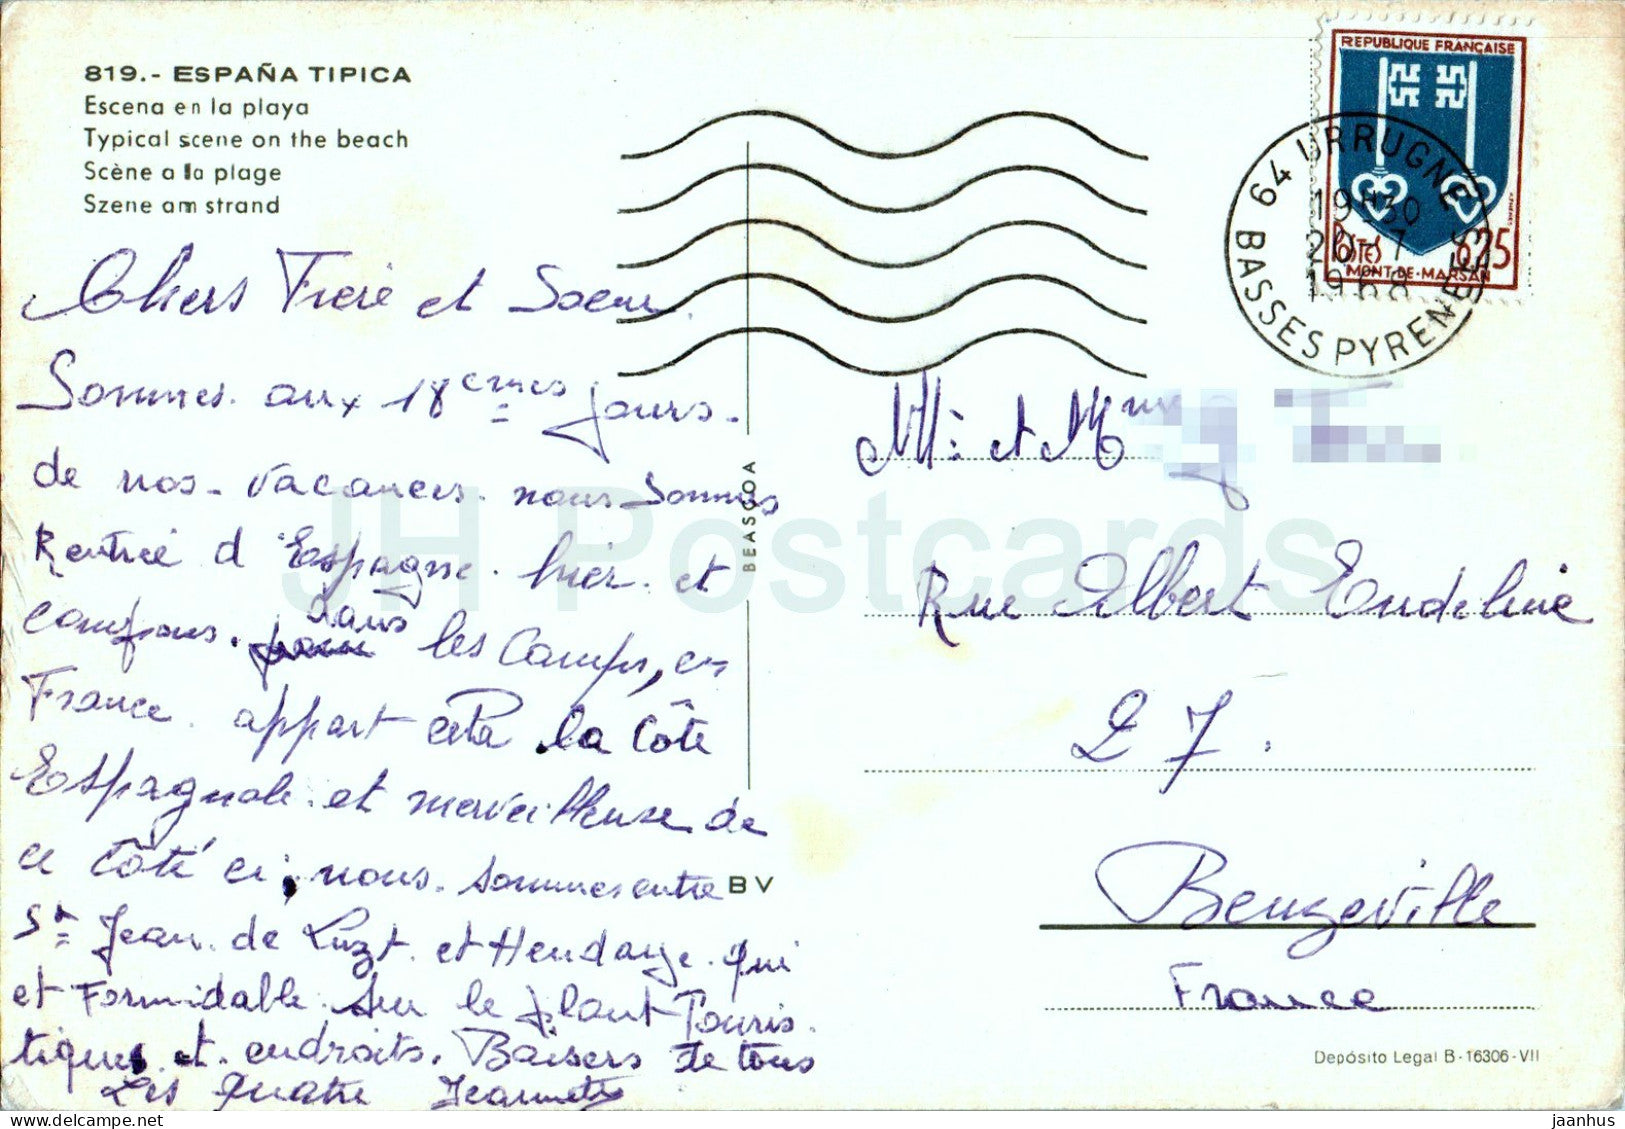 819.- ESPAÑA TIPICA
Escena en la playa
Typical scene on the beach
Scène a la plage
Szene am strand
Chers Frère et Soeur.
Sommes aux 18èmes jours.
de nos vacances. nous Sommes
Rentrée d'Espagne. hier. et
campons. dans les Camps, en
France. appart cela la Côte
Espagnole. et merveilleuse de
ce côté ci, nous. sommes entre
St Jean. de Luzt. et Hendaye. qui
et Formidable. Sur le plant Touris.
tiques et endroits. Baisers de tous
Les quatre Jeannette
BEASCOA
BV
REPUBLIQUE FRANÇAISE
POSTES 0,25
MONT-DE-MARSAN
64 URRUGNE
19H30
20-7
1968
BASSES PYRENEES
Mr: et Mme
Rue Albert Endeline
27.
Beuzeville
France
Depósito Legal B-16306-VII
JH Postcards
jaanhus